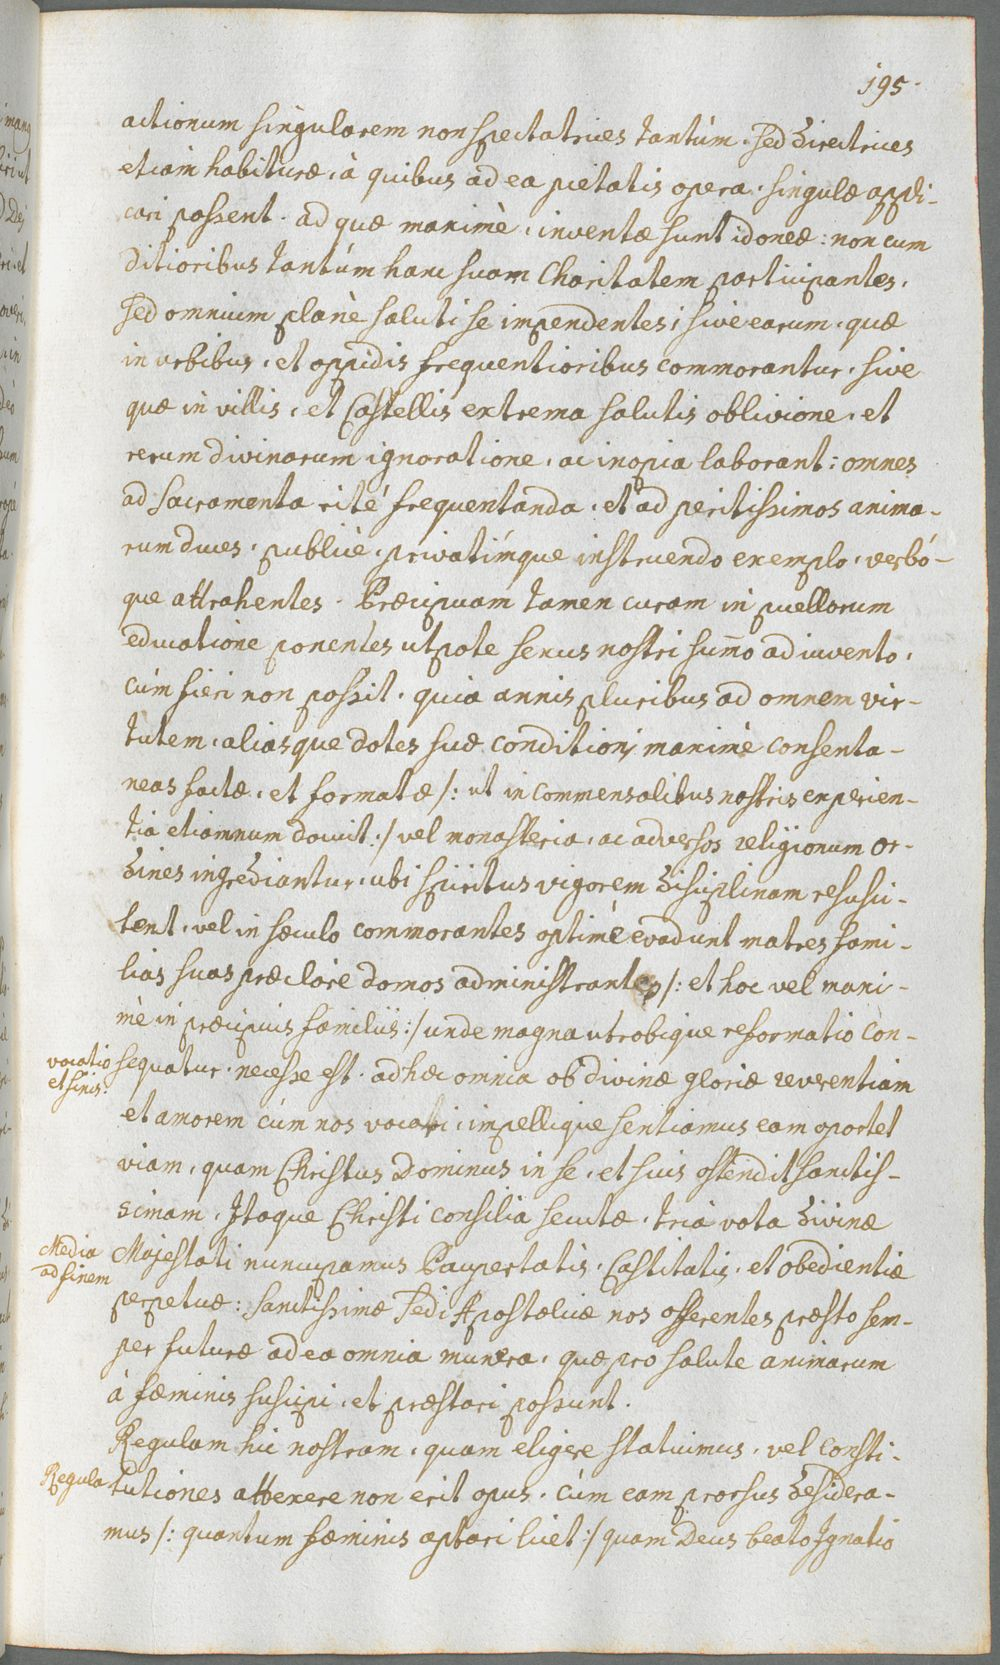 195.
actionum singularem non spectatrices tantúm. sed directrices
etiám habituræ, à quibus ad ea pietatis opera, singulæ appli-
cari possent. ad quæ maximè, inventæ sunt idoneæ: non cum
Ditioribus tantúm hanc suam Charitatem participantes,
sed omnium planè saluti se impendentes; sive earum, quæ
in vrbibus, et oppidis frequentioribus commorantur, sive
quæ in villis, et Castellis extrema salutis oblivione, et
rerum divinarum ignoratione, ac inopia laborant: omnes
ad Sacramenta rité frequentanda, et ad peritissimos anima-
rum duces, publicè, privatímque instruendo exemplo, verbó-
que attrahentes. Præcipuam tamen curam in puellarum
educatione ponentes utpote sexus nostri sum̄o adiuvento,
cúm fieri non possit, quia annis pluribus ad omnem vir-
tutem, aliasque dotes suæ conditioni maximè consenta-
neas factæ, et formatæ /: ut in commensalibus nostris experien-
tia etiamnum docuit :/ vel monasteria, ac adversos religionum or-
dines ingrediantur, ubi spiritus vigorem disciplinam resusci-
tent, vel in sæculo commorantes optimè evadunt matres fami-
lias suas præclarè domos administrantes /: et hoc vel maxi-
mè in præcipuis familiis :/ unde magna utrobique reformatio con-
vocatio
et finis.
sequatur, necesse est. ad hæc omnia ob divinæ gloriæ reverentiam
et amorem cúm nos vocari, impellique sentiamus eam oportet
viam, quam Christus Dominus in se, et suis ostendit sanctis-
simam. Itaque Christi consilia secutæ, tria vota divinæ
Media
ad finem
Majestati nuncupamus Paupertatis, Castitatis, et obedientiæ
perpetuæ: Sanctissimæ Sedi Apostolicæ nos offerentes præsto sem-
per futuræ ad ea omnia munera, quæ pro salute animarum
à fæminis suscipi, et præstari possunt.
Regulam hic nostram, quam eligere statuimus, vel Consti-
Regula
tutiones attexere non erit opus, cúm eam prorsus desidera-
mus /: quantum fæminis aptari licet :/ quam Deus beato Ignatio